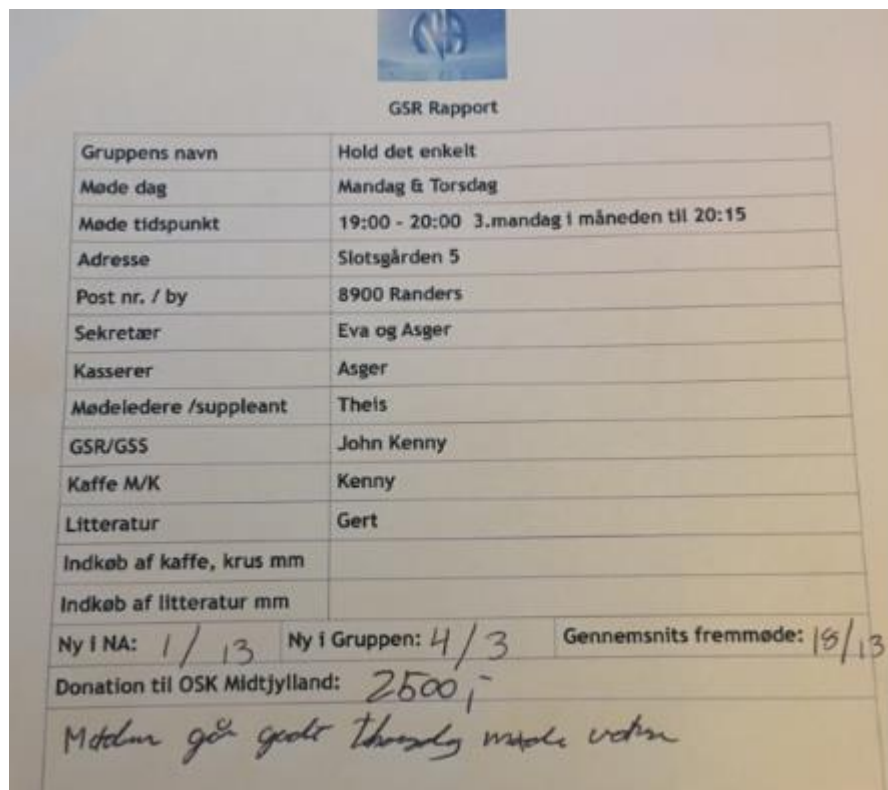 NA
GSR Rapport
Gruppens navn Hold det enkelt
Møde dag Mandag & Torsdag
Møde tidspunkt 19:00 - 20:00 3.mandag i måneden til 20:15
Adresse Slotsgården 5
Post nr. / by 8900 Randers
Sekretær Eva og Asger
Kasserer Asger
Mødeledere /suppleant Theis
GSR/GSS John Kenny
Kaffe M/K Kenny
Litteratur Gert
Indkøb af kaffe, krus mm
Indkøb af litteratur mm
Ny i NA: 1 / 13 Ny i Gruppen: 4/3 Gennemsnits fremmøde: 18/13
Donation til OSK Midtjylland: 2500,-
går godt møde